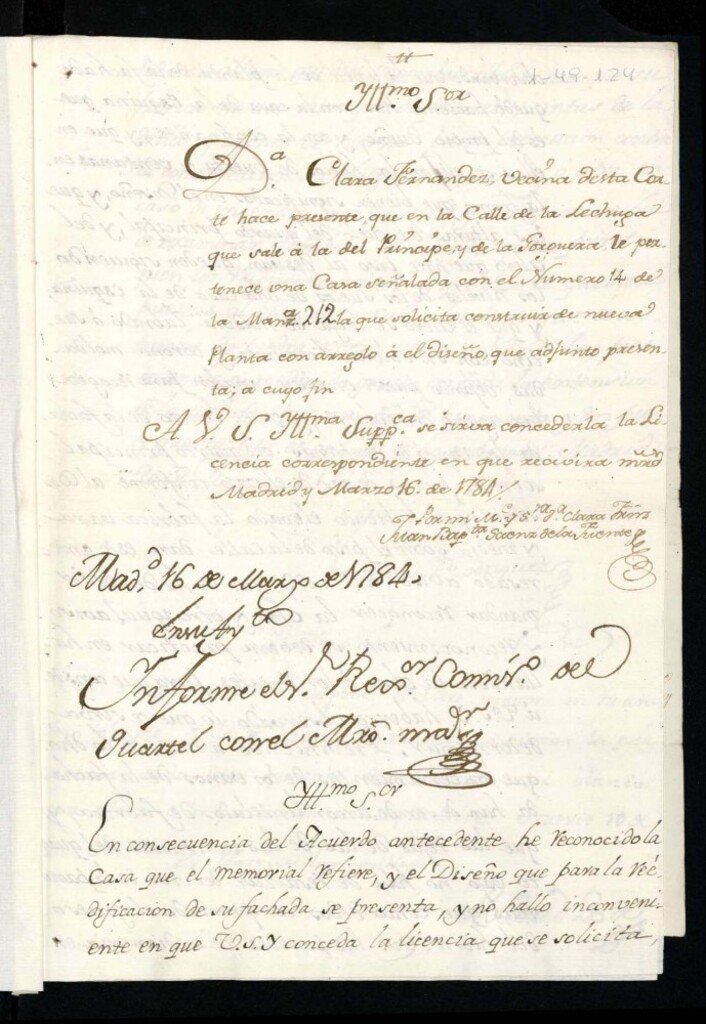 1-49-124
Yll.mo S.or
D.a Clara Fernandez, vecina desta Cor-
te hace presente, que en la Calle de la Lechuga
que sale á la del Principe, y de la Gorguera le per-
tenece una Casa señalada con el Numero 14 de
la Manz.a 212 la que solicita construir de nueva
Planta con arreglo á el diseño, que adjunto presen-
ta; a cuyo fin
A V. S. Yll.ma Supp.ca se sirva concederla la Li-
cencia correspondiente en que recivira mrd
Madrid y Marzo 16. de 1784
Clara Frnz
de la Fuente
Mad.d 16 de Marzo de 1784.
En su Ay.to
Informe el S.r Rex.or Comis.o del
Quartel con el Mro. m.or
Yll.mo S.or
En consecuencia del Acuerdo antecedente he reconocido la
Casa que el memorial refiere, y el Diseño que para la reé-
dificacion de su fachada se presenta, y no hallo inconveni-
ente en que V.S.Y conceda la licencia que se solicita,